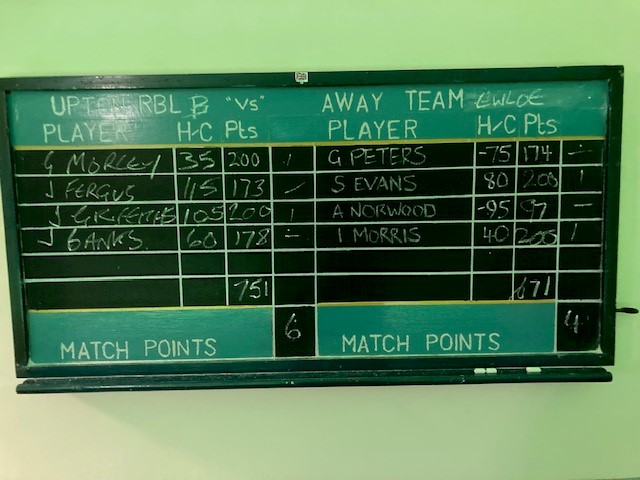 UPTON RBL B "VS" AWAY TEAM EWLOE
PLAYER H/C Pts PLAYER H/C Pts
G MORLEY 35 200 1 G PETERS -75 174 -
J FERGUS 115 173 - S EVANS 80 200 1
J GRIFFITHS 105 200 1 A NORWOOD -95 97 -
J BANKS 60 178 - I MORRIS 40 200 1
751 671
MATCH POINTS 6 MATCH POINTS 4